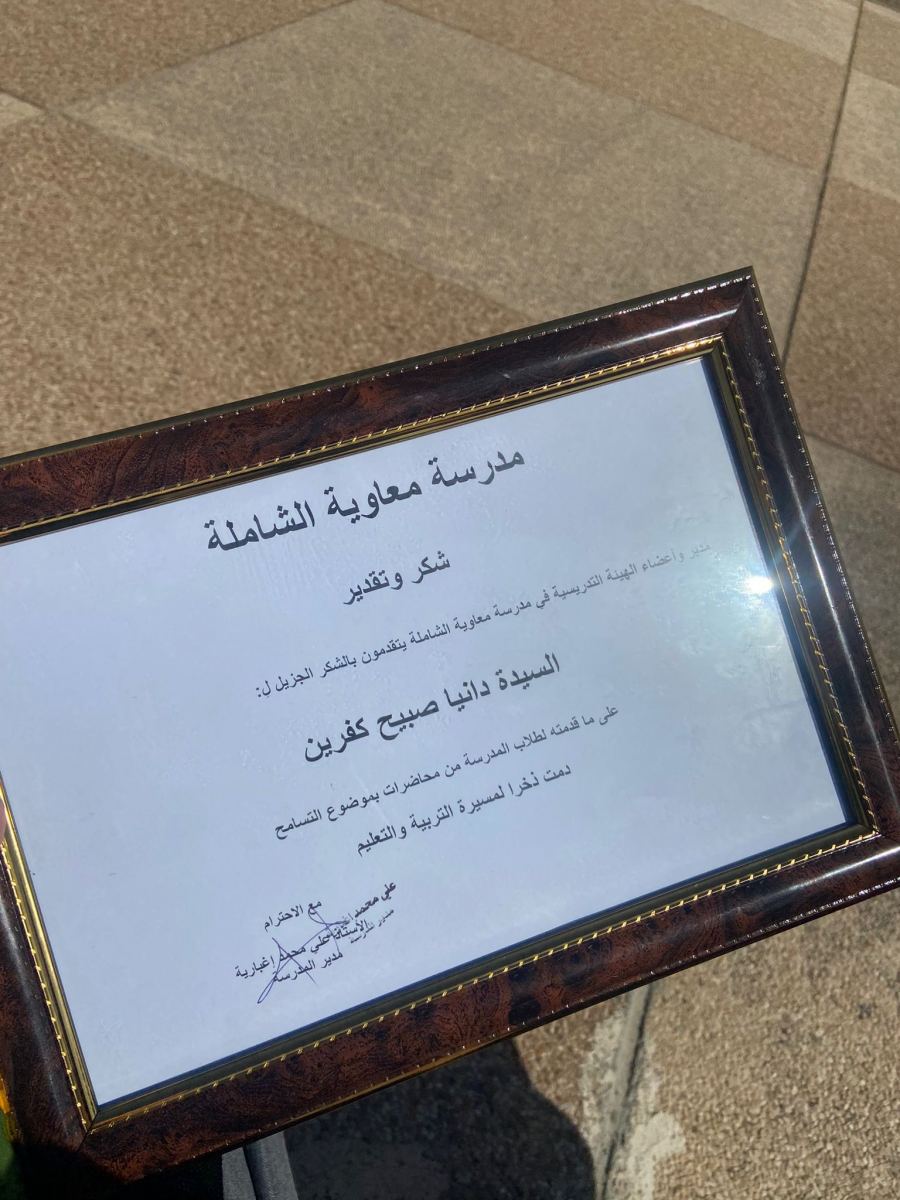 مدرسة معاوية الشاملة
شكر وتقدير
مدير وأعضاء الهيئة التدريسية في مدرسة معاوية الشاملة يتقدمون بالشكر الجزيل ل:
السيدة دانيا صبيح كفرين
على ما قدمته لطلاب المدرسة من محاضرات بموضوع التسامح
دمت ذخرا لمسيرة التربية والتعليم
مع الاحترام
علي محمد
الأستاذ علي محمد اغبارية
مدير المدرسة